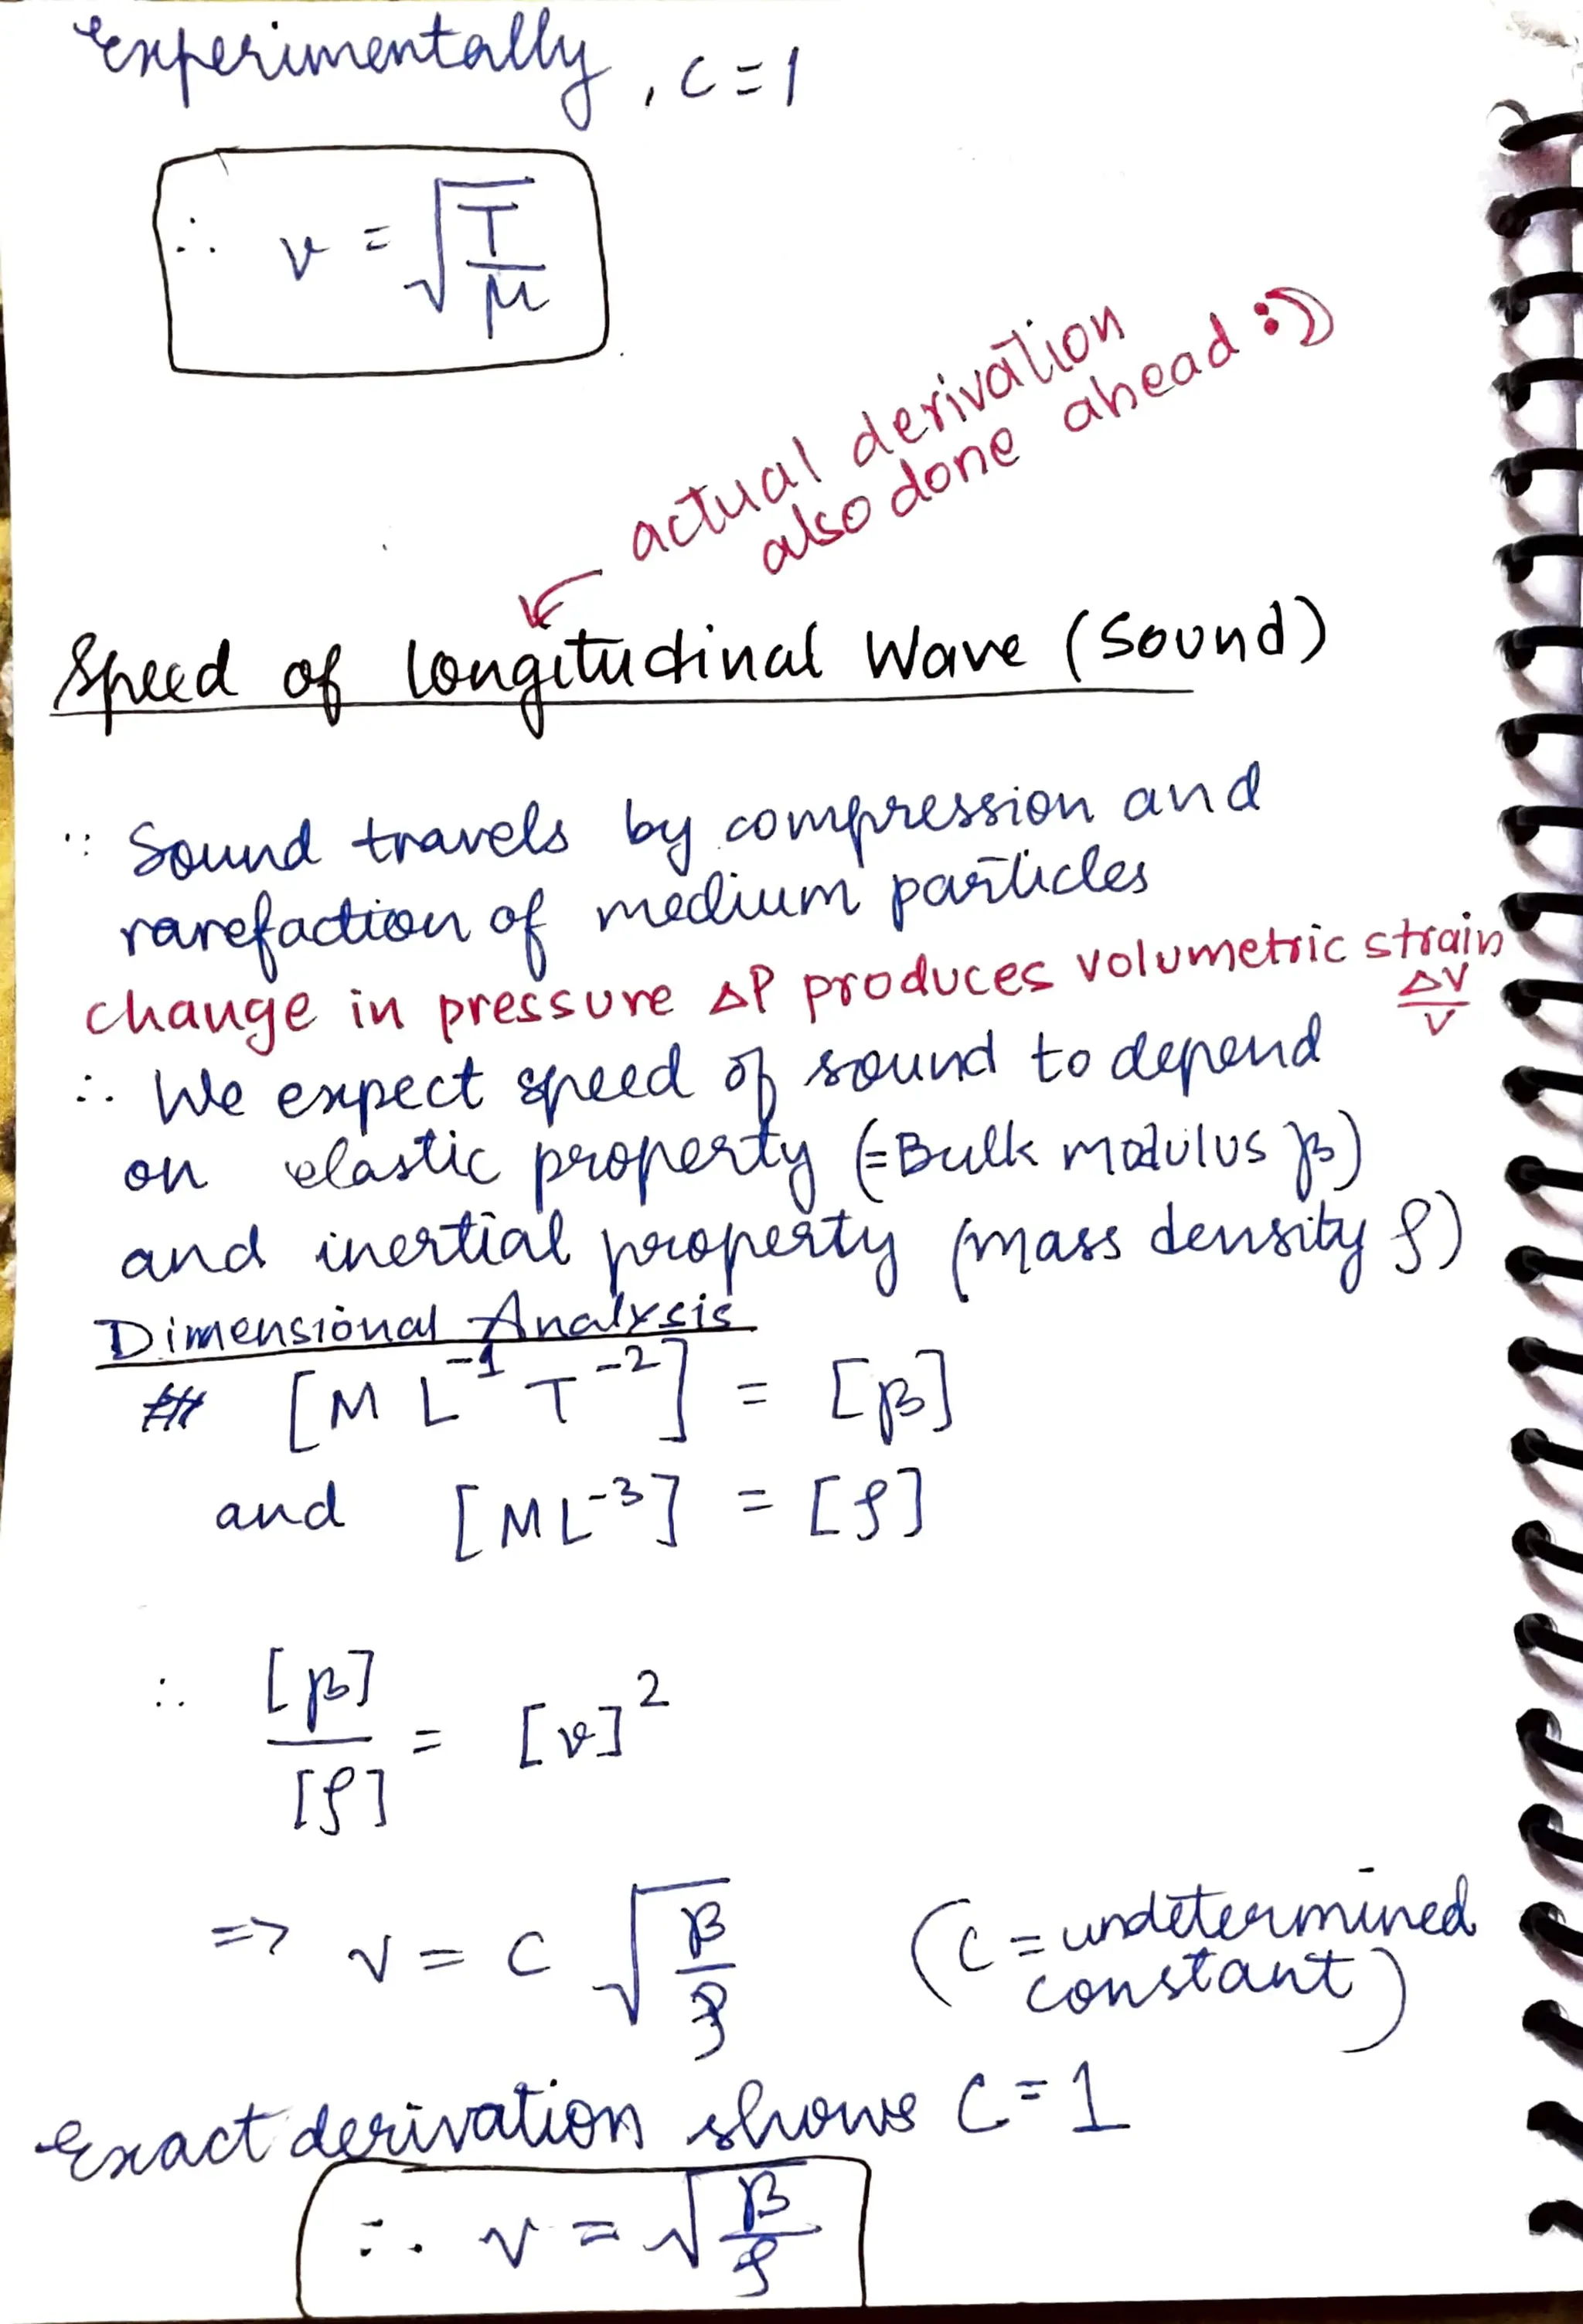 Experimentally, C = 1
∴ v = √(T/μ)
actual derivation
also done ahead :))
Speed of Longitudinal Wave (Sound)
∵ Sound travels by compression and
rarefaction of medium particles
change in pressure ΔP produces volumetric strain ΔV/V
∴ We expect speed of sound to depend
on elastic property (=Bulk modulus β)
and inertial property (mass density ρ)
Dimensional Analysis
[M L⁻¹ T⁻²] = [β]
and [ML⁻³] = [ρ]
∴ [β]/[ρ] = [v]²
=> v = C √(β/ρ) (C = undetermined
constant)
Exact derivation shows C = 1
∴ v = √(β/ρ)